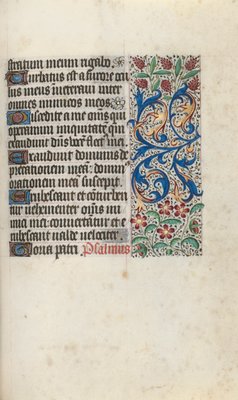 stratum meum rigabo.
Turbatus est a furore ocu
lus meus inveteravi inter
omnes inimicos meos.
Discedite a me omnes qui
operamini iniquitatē qm̄
exaudivit dn̄s vocē fletꝰ mei.
Exaudivit dominus de
precationem meā: dominꝰ
orationem meā suscepit.
Erubescant et cōturben
tur vehementer om̄s ini
mici mei: convertātur et e
rubescant valde velociter.
Gloria patri Psalmus